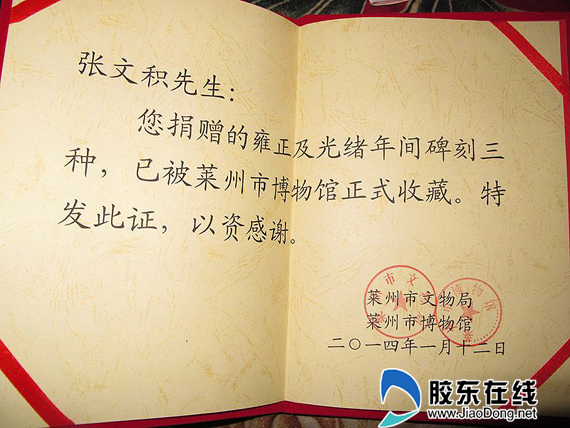 张文积先生：
您捐赠的雍正及光绪年间碑刻三
种，已被莱州市博物馆正式收藏。特
发此证，以资感谢。
莱州市文物局
莱州市博物馆
二〇一四年一月十二日
胶东在线
www.JiaoDong.net